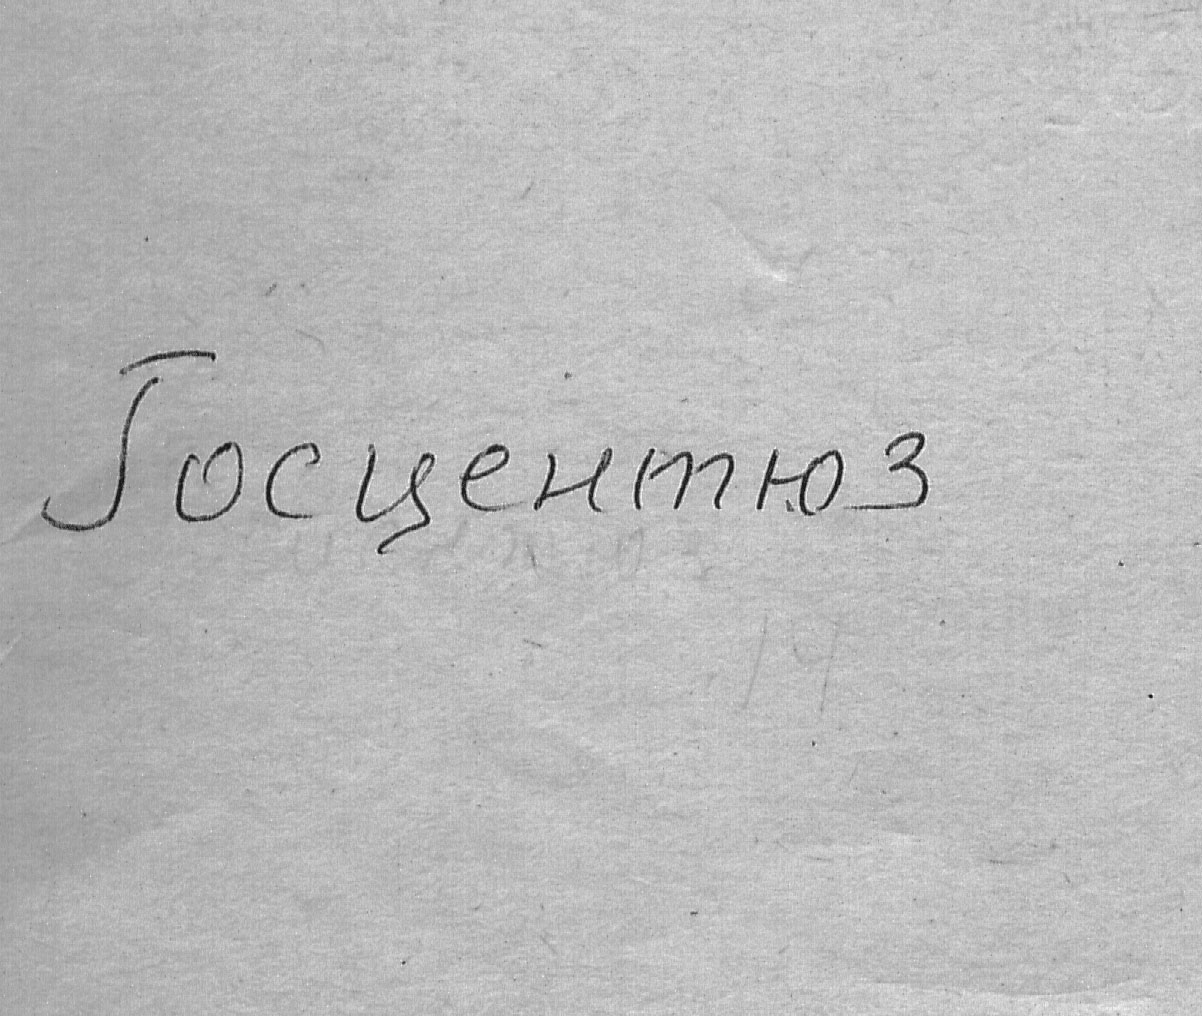 Госцентюз
14